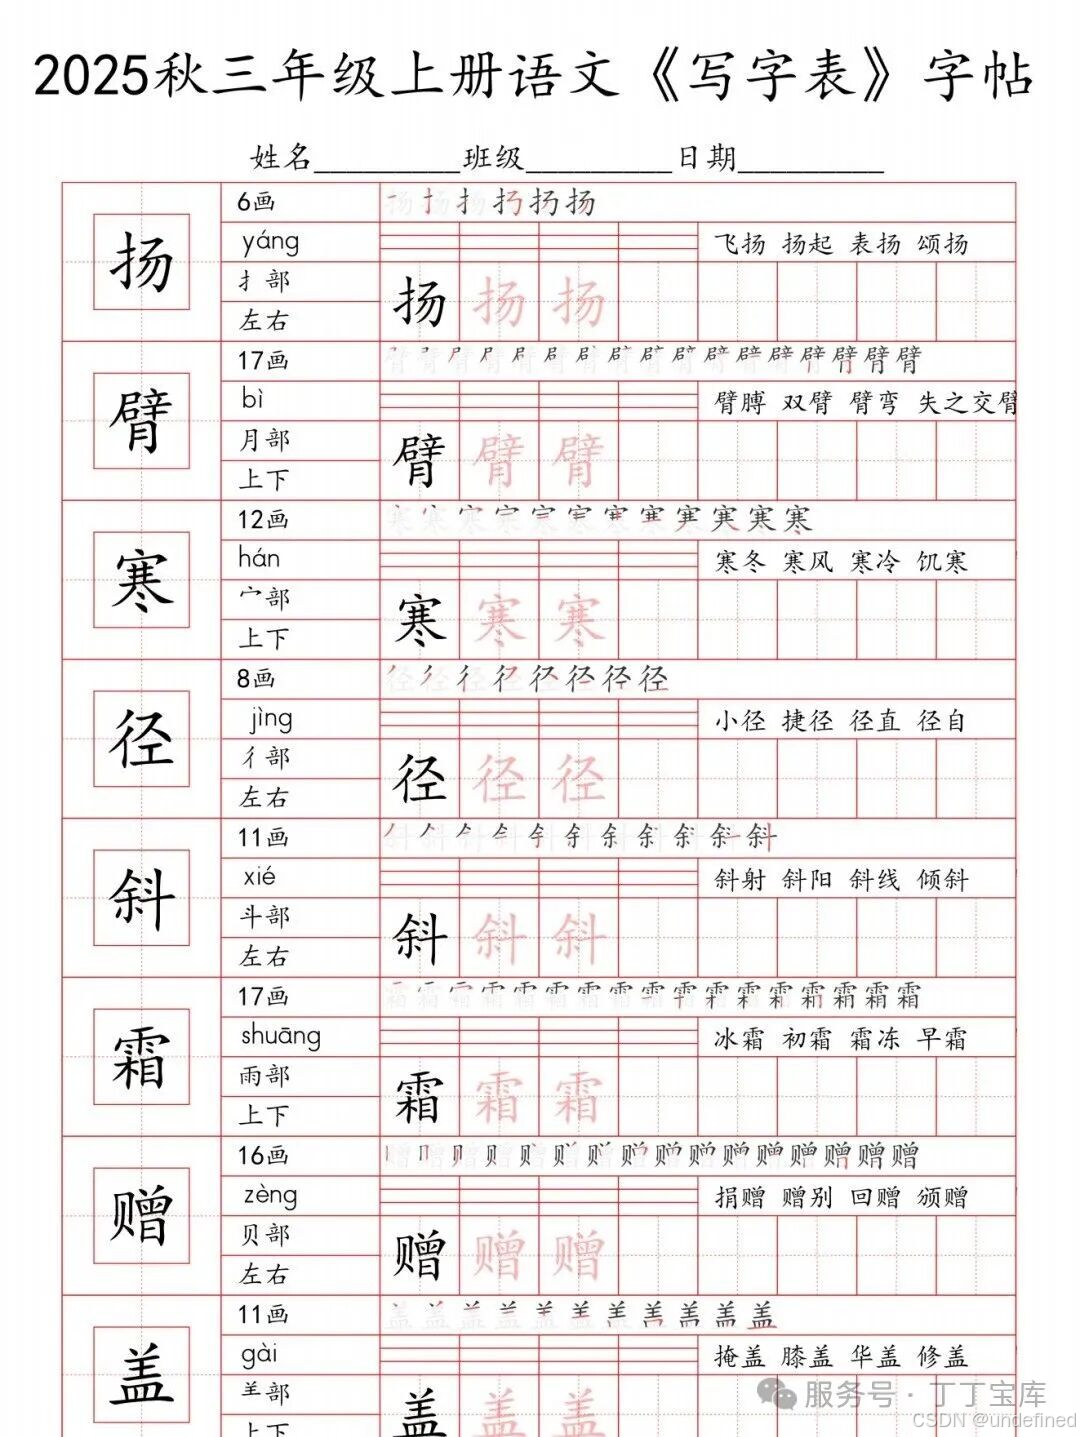 2025秋三年级上册语文《写字表》字帖
姓名_________班级_________日期_________
扬
6画
yáng
飞扬 扬起 表扬 颂扬
扌部
左右
扬 扬 扬
臂
17画
bì
臂膊 双臂 臂弯 失之交臂
月部
上下
臂 臂 臂
寒
12画
hán
寒冬 寒风 寒冷 饥寒
宀部
上下
寒 寒 寒
径
8画
jìng
小径 捷径 径直 径自
彳部
左右
径 径 径
斜
11画
xié
斜射 斜阳 斜线 倾斜
斗部
左右
斜 斜 斜
霜
17画
shuāng
冰霜 初霜 霜冻 早霜
雨部
上下
霜 霜 霜
赠
16画
zèng
捐赠 赠别 回赠 颁赠
贝部
左右
赠 赠 赠
盖
11画
gài
掩盖 膝盖 华盖 修盖
⺷部
上下
盖 盖 盖
服务号·丁丁宝库
CSDN @undefined